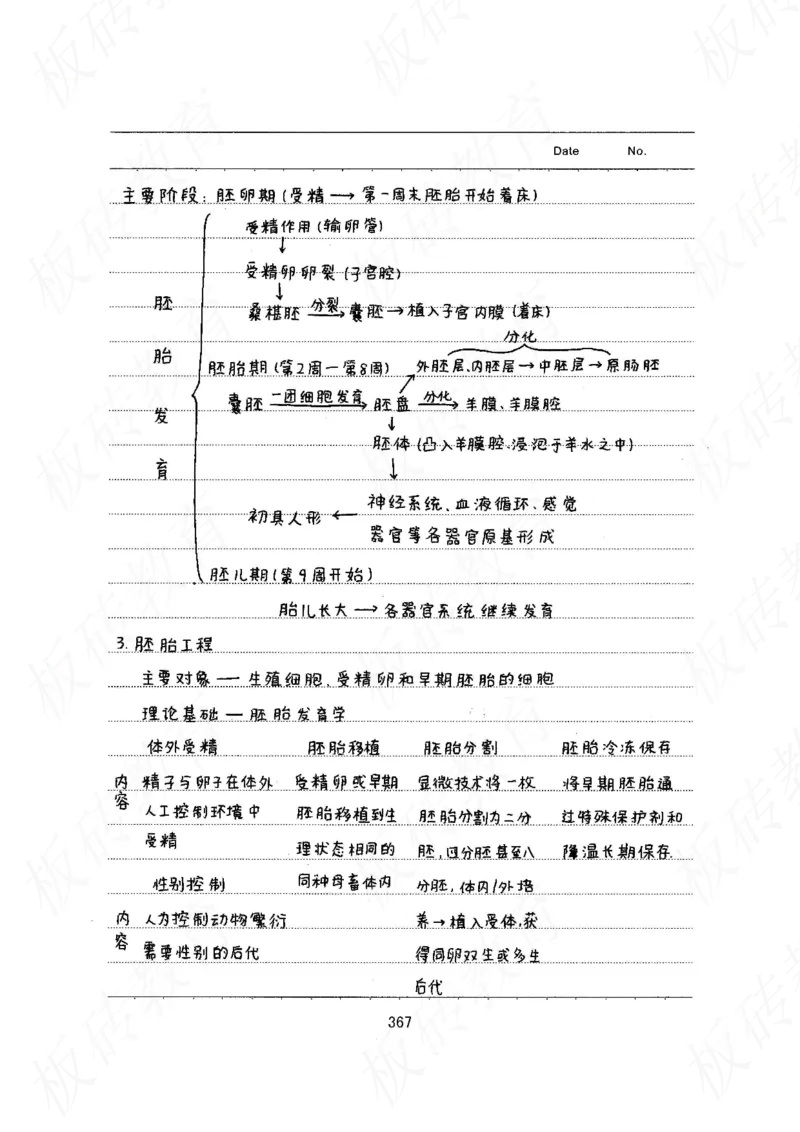 Date No.
主要阶段：胚卵期(受精→第一周末胚胎开始着床)
受精作用(输卵管)
↓
受精卵卵裂(子宫腔)
↓
桑椹胚 分裂→ 囊胚→植入子宫内膜(着床)
胚胎发育
分化
胚胎期(第2周—第8周) 外胚层、内胚层→中胚层→原肠胚
囊胚 一团细胞发育→ 胚盘 分化→ 羊膜、羊膜腔
↓
胚体(凸入羊膜腔、浸泡于羊水之中)
↓
初具人形 ← 神经系统、血液循环、感觉
器官等各器官原基形成
胚儿期(第9周开始)
胎儿长大→各器官系统继续发育
3. 胚胎工程
主要对象—生殖细胞、受精卵和早期胚胎的细胞
理论基础—胚胎发育学
体外受精 胚胎移植 胚胎分割 胚胎冷冻保存
内容 精子与卵子在体外 受精卵或早期 显微技术将一枚 将早期胚胎通
人工控制环境中 胚胎移植到生 胚胎分割为二分 过特殊保护剂和
受精 理状态相同的 胚,四分胚甚至八 降温长期保存.
性别控制 同种母畜体内 分胚,体内/外培
内容 人为控制动物繁衍 养→植入受体,获
需要性别的后代 得同卵双生或多生
后代
367
板砖教育